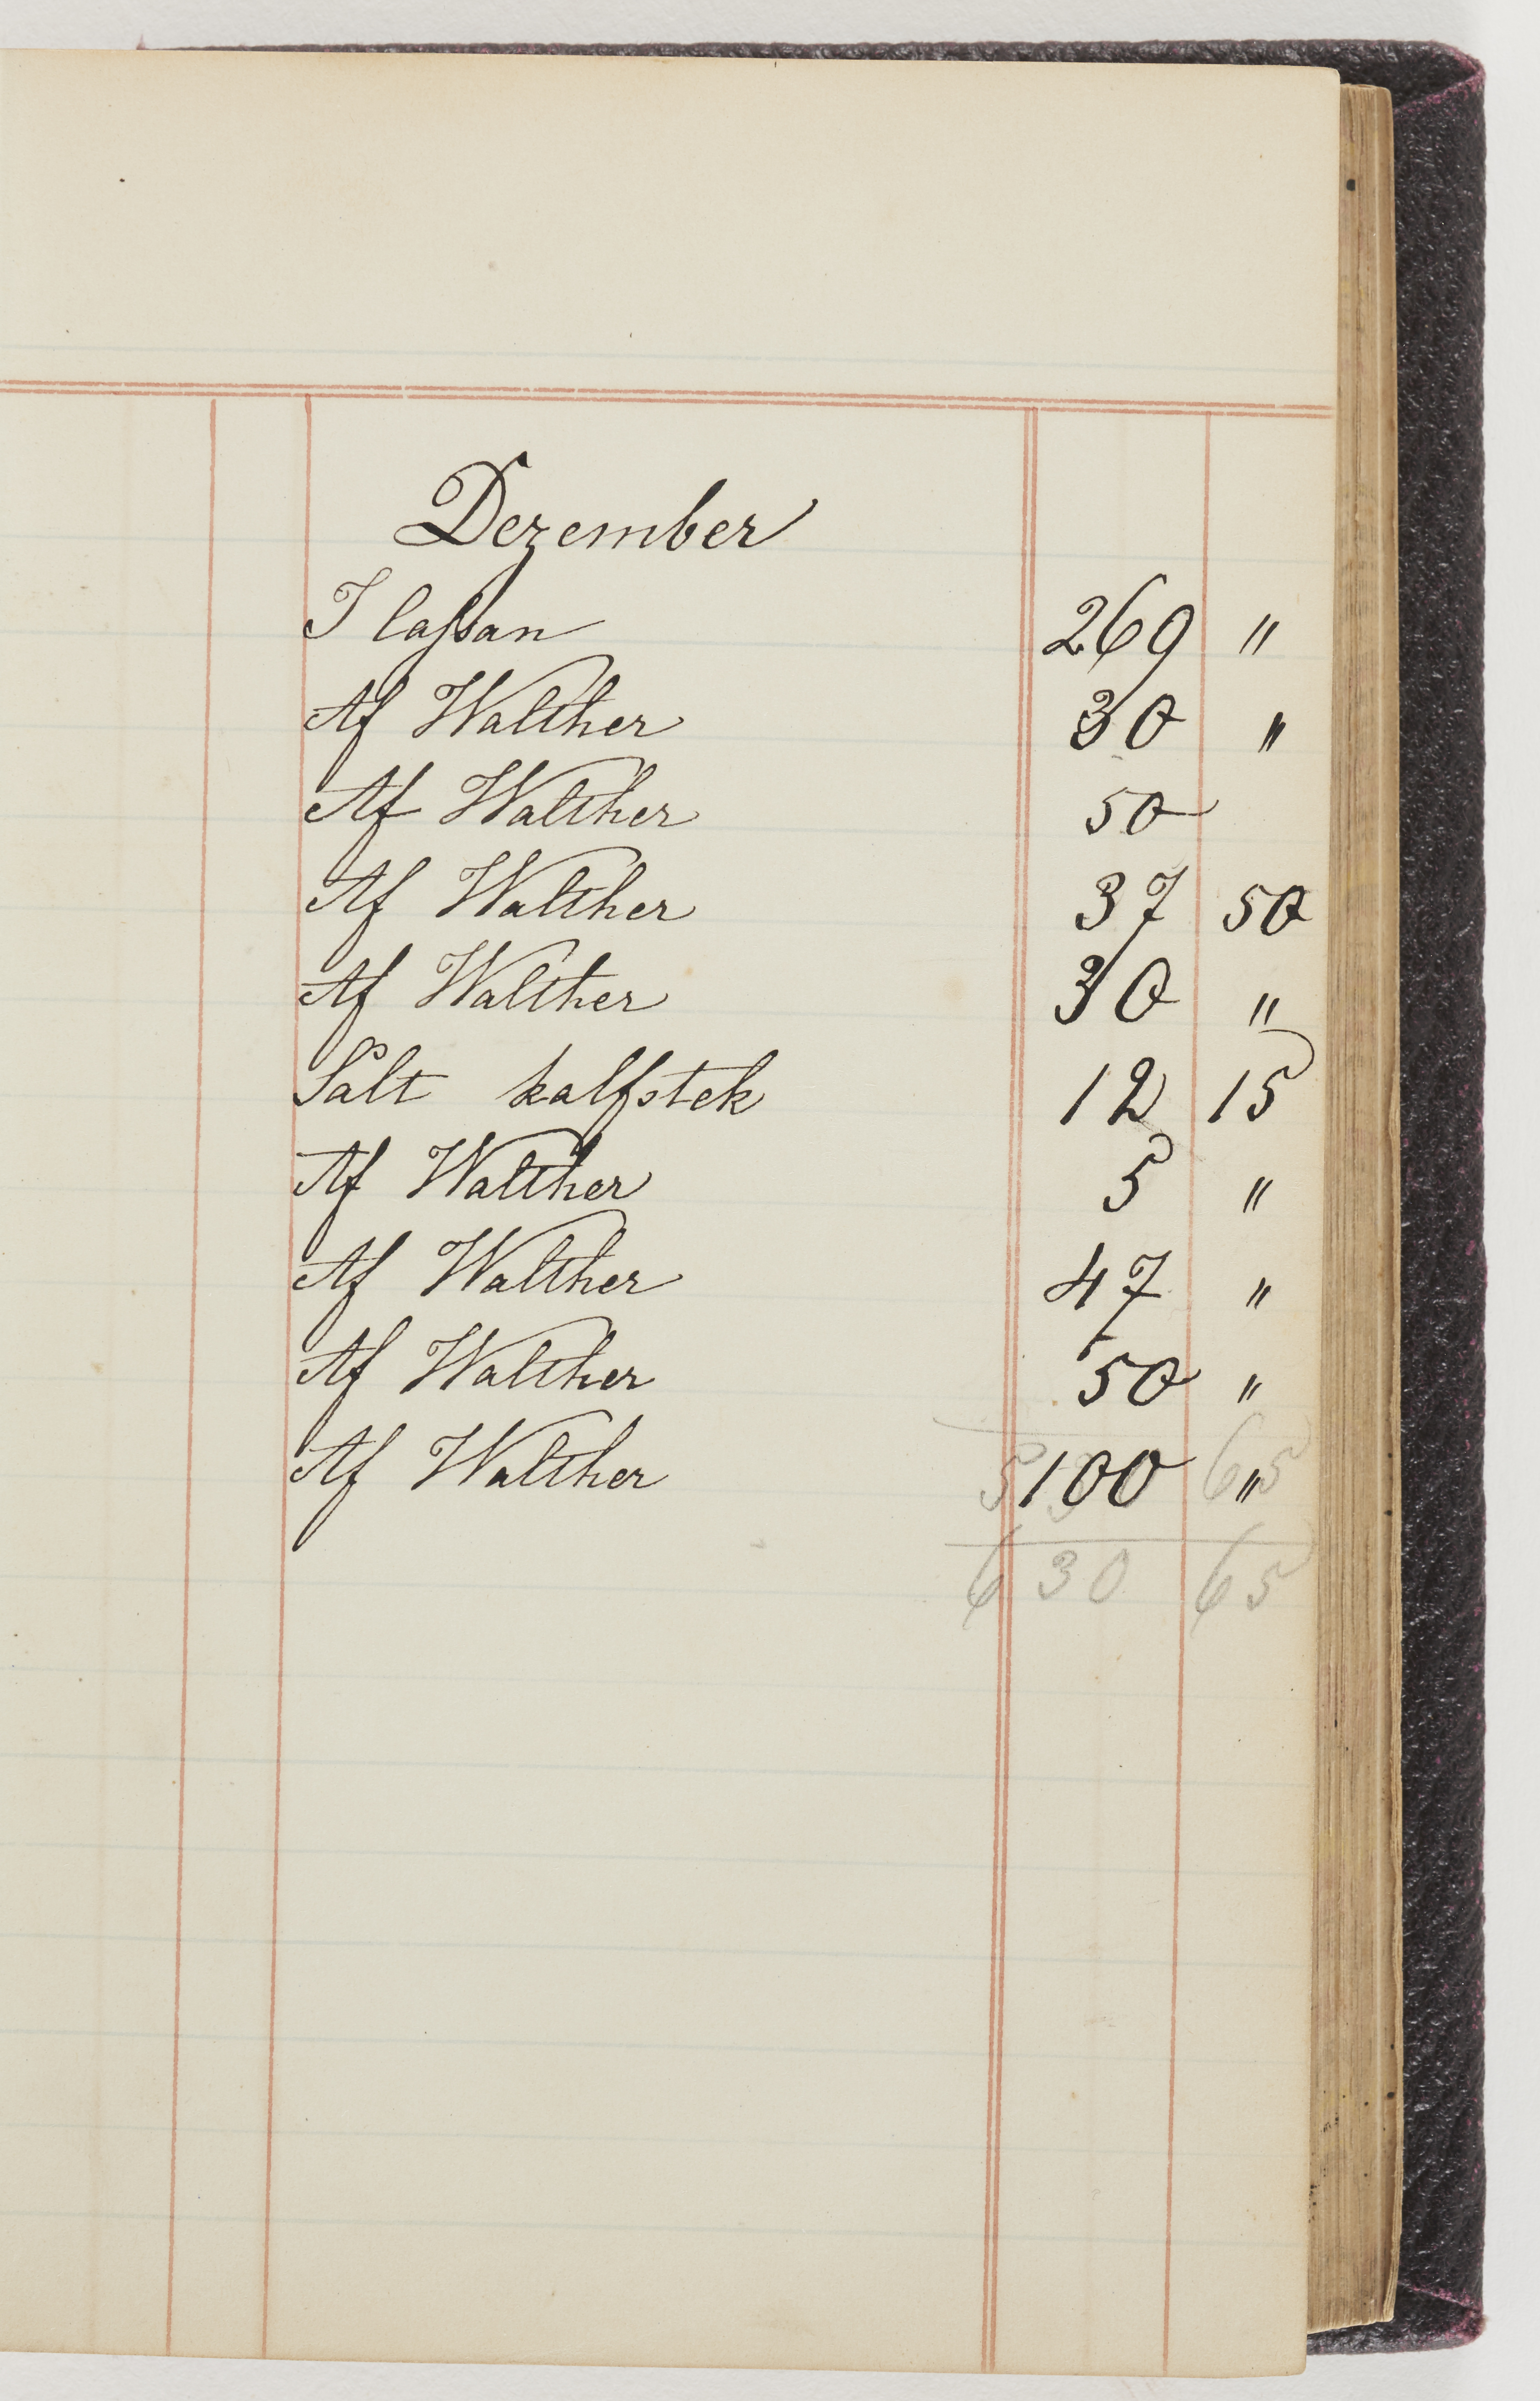 Dezember
I Cassan 269 "
Af Walther 30 "
Af Walther 50
Af Walther 37 50
Af Walther 30 "
Sålt kalfstek 12 15
Af Walther 5 "
Af Walther 47 "
Af Walther 50 "
Af Walther 100 "
630 65